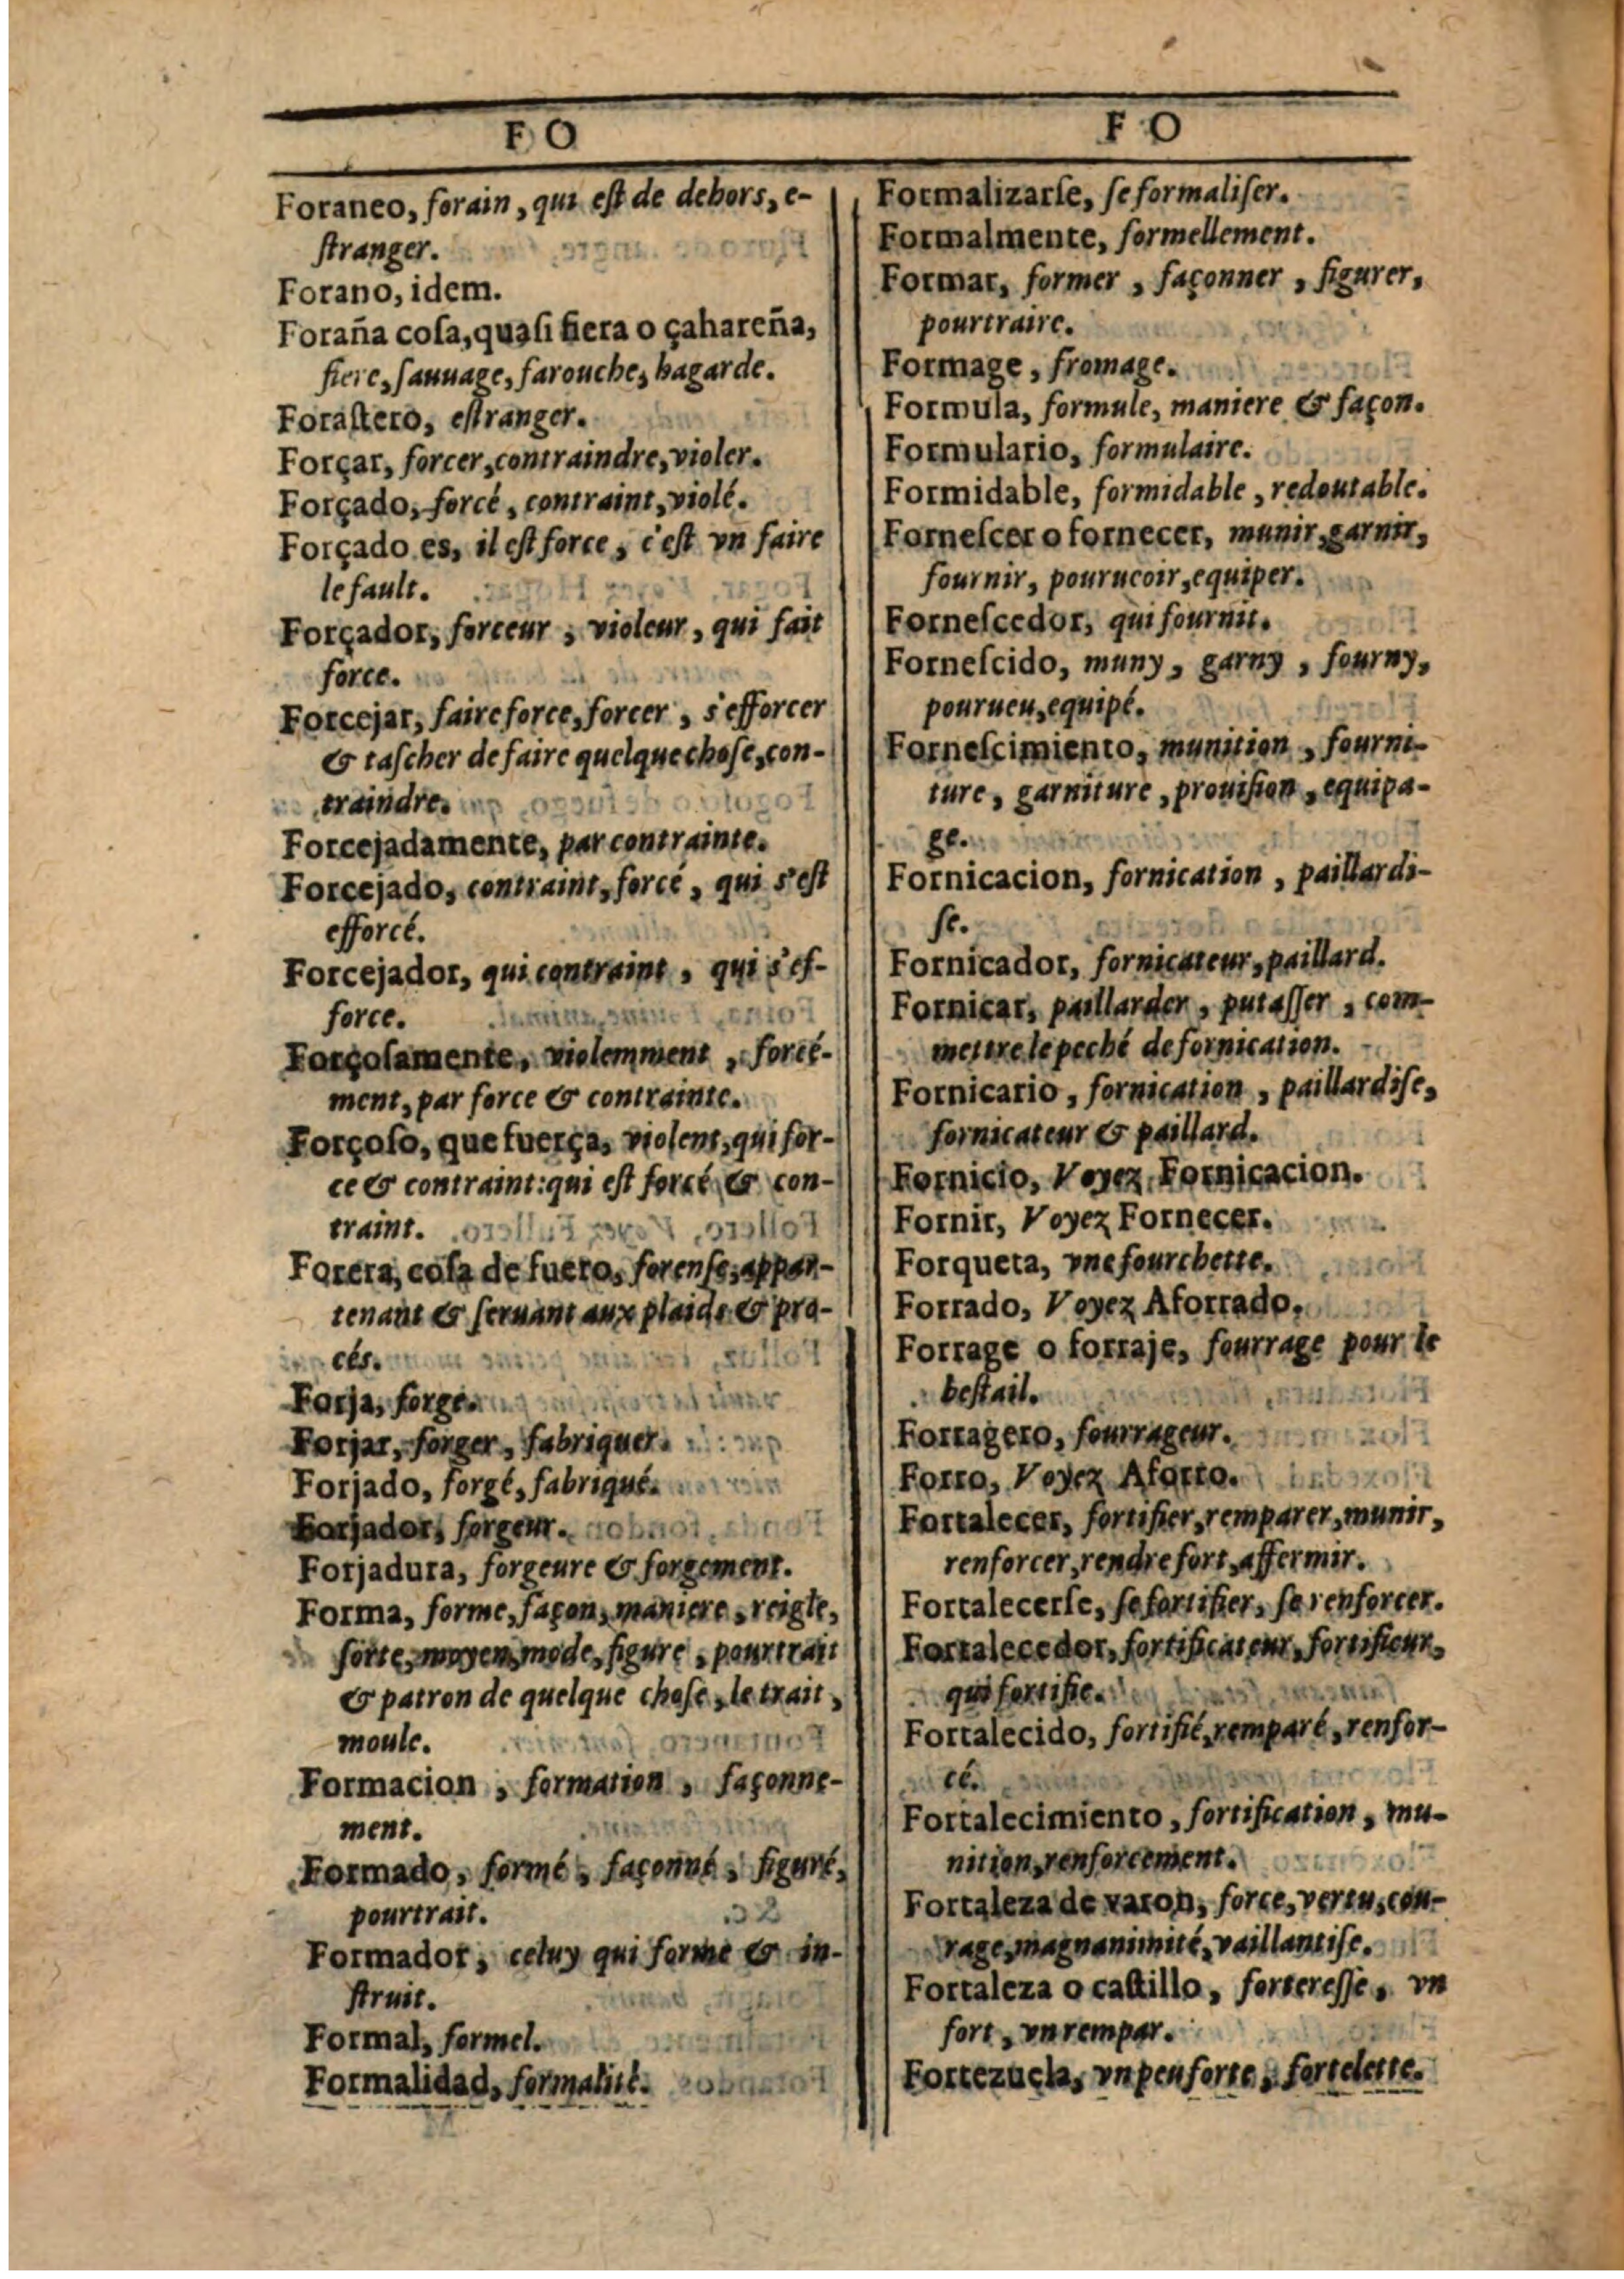 F O
Foraneo, forain, qui eſt de dehors, e-
ſtranger.
Forano, idem.
Foraña coſa, quaſi fiera o çahareña,
fiere, ſauuage, farouche, hagarde.
Foraſtero, eſtranger.
Forçar, forcer, contraindre, violer.
Forçado, forcé, contraint, violé.
Forçado es, il eſt force, c'eſt vn faire
le fault.
Forçador, forceur, violeur, qui fait
force.
Forcejar, faire force, forcer, s'efforcer
& taſcher de faire quelque choſe, con-
traindre.
Forcejadamente, par contrainte.
Forcejado, contraint, forcé, qui s'eſt
efforcé.
Forcejador, qui contraint, qui s'ef-
force.
Forçoſamente, violemment, forcé-
ment, par force & contrainte.
Forçoſo, que fuerça, violent, qui for-
ce & contraint: qui eſt forcé & con-
traint.
Forera, coſa de fuero, forenſe, appar-
tenant & ſeruant aux plaids & pro-
cés.
Forja, forge.
Forjar, forger, fabriquer.
Forjado, forgé, fabriqué.
Forjador, forgeur.
Forjadura, forgeure & forgement.
Forma, forme, façon, maniere, reigle,
ſorte, moyen, mode, figure, pourtrait
& patron de quelque choſe, le trait,
moule.
Formacion, formation, façonne-
ment.
Formado, formé, façonné, figuré,
pourtrait.
Formador, celuy qui forme & in-
ſtruit.
Formal, formel.
Formalidad, formalité.
F O
Formalizarſe, ſe formaliſer.
Formalmente, formellement.
Formar, former, façonner, figurer,
pourtraire.
Formage, fromage.
Formula, formule, maniere & façon.
Formulario, formulaire.
Formidable, formidable, redoutable.
Forneſcer o fornecer, munir, garnir,
fournir, pourueoir, equiper.
Forneſcedor, qui fournit.
Forneſcido, muny, garny, fourny,
pourueu, equipé.
Forneſcimiento, munition, fourni-
ture, garniture, prouiſion, equipa-
ge.
Fornicacion, fornication, paillardi-
ſe.
Fornicador, fornicateur, paillard.
Fornicar, paillarder, putaſſer, com-
mettre le peché de fornication.
Fornicario, fornication, paillardiſe,
fornicateur & paillard.
Fornicio, Voyez Fornicacion.
Fornir, Voyez Fornecer.
Forqueta, vne fourchette.
Forrado, Voyez Aforrado.
Forrage o forraje, fourrage pour le
beſtail.
Forragero, fourrageur.
Forro, Voyez Aforro.
Fortalecer, fortifier, remparer, munir,
renforcer, rendre fort, affermir.
Fortalecerſe, ſe fortifier, ſe renforcer.
Fortalecedor, fortificateur, fortifieur,
qui fortifie.
Fortalecido, fortifié, remparé, renfor-
cé.
Fortalecimiento, fortification, mu-
nition, renforcement.
Fortaleza de varon, force, vertu, cou-
rage, magnanimité, vaillantiſe.
Fortaleza o caſtillo, fortereſſe, vn
fort, vn rempar.
Fortezuela, vn peu forte, fortelette.